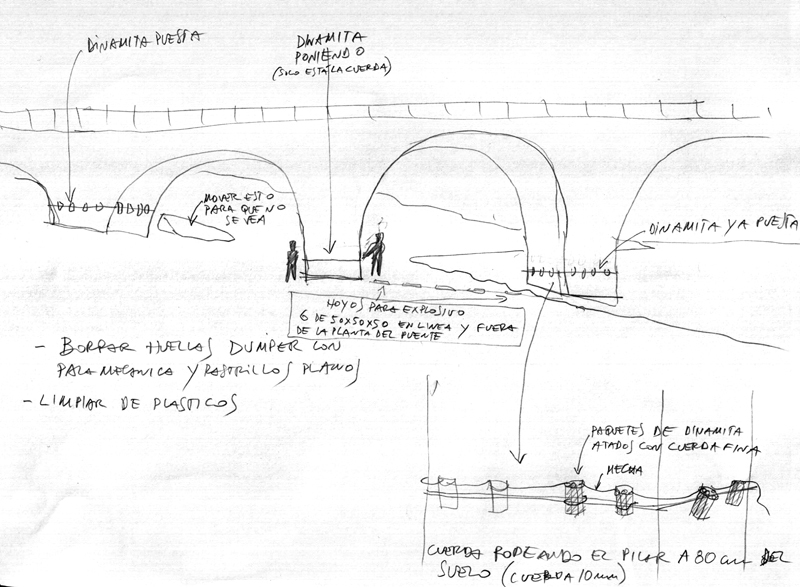 DINAMITA PUESTA
DINAMITA
PONIENDO
(SOLO ESTÁ LA CUERDA)
MOVER ESTO
PARA QUE NO
SE VEA
DINAMITA YA PUESTA
HOYOS PARA EXPLOSIVO
6 DE 50X50X50 EN LINEA Y FUERA
DE LA PLANTA DEL PUENTE
- BORRAR HUELLAS DUMPER CON
PALA MECANICA Y RASTRILLOS PLANOS
- LIMPIAR DE PLASTICOS
PAQUETES DE DINAMITA
ATADOS CON CUERDA FINA
MECHA
CUERDA RODEANDO EL PILAR A 80 cm DEL
SUELO (CUERDA 10 mm)